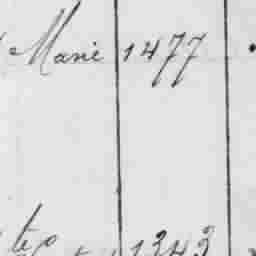 Marie 1477
1343